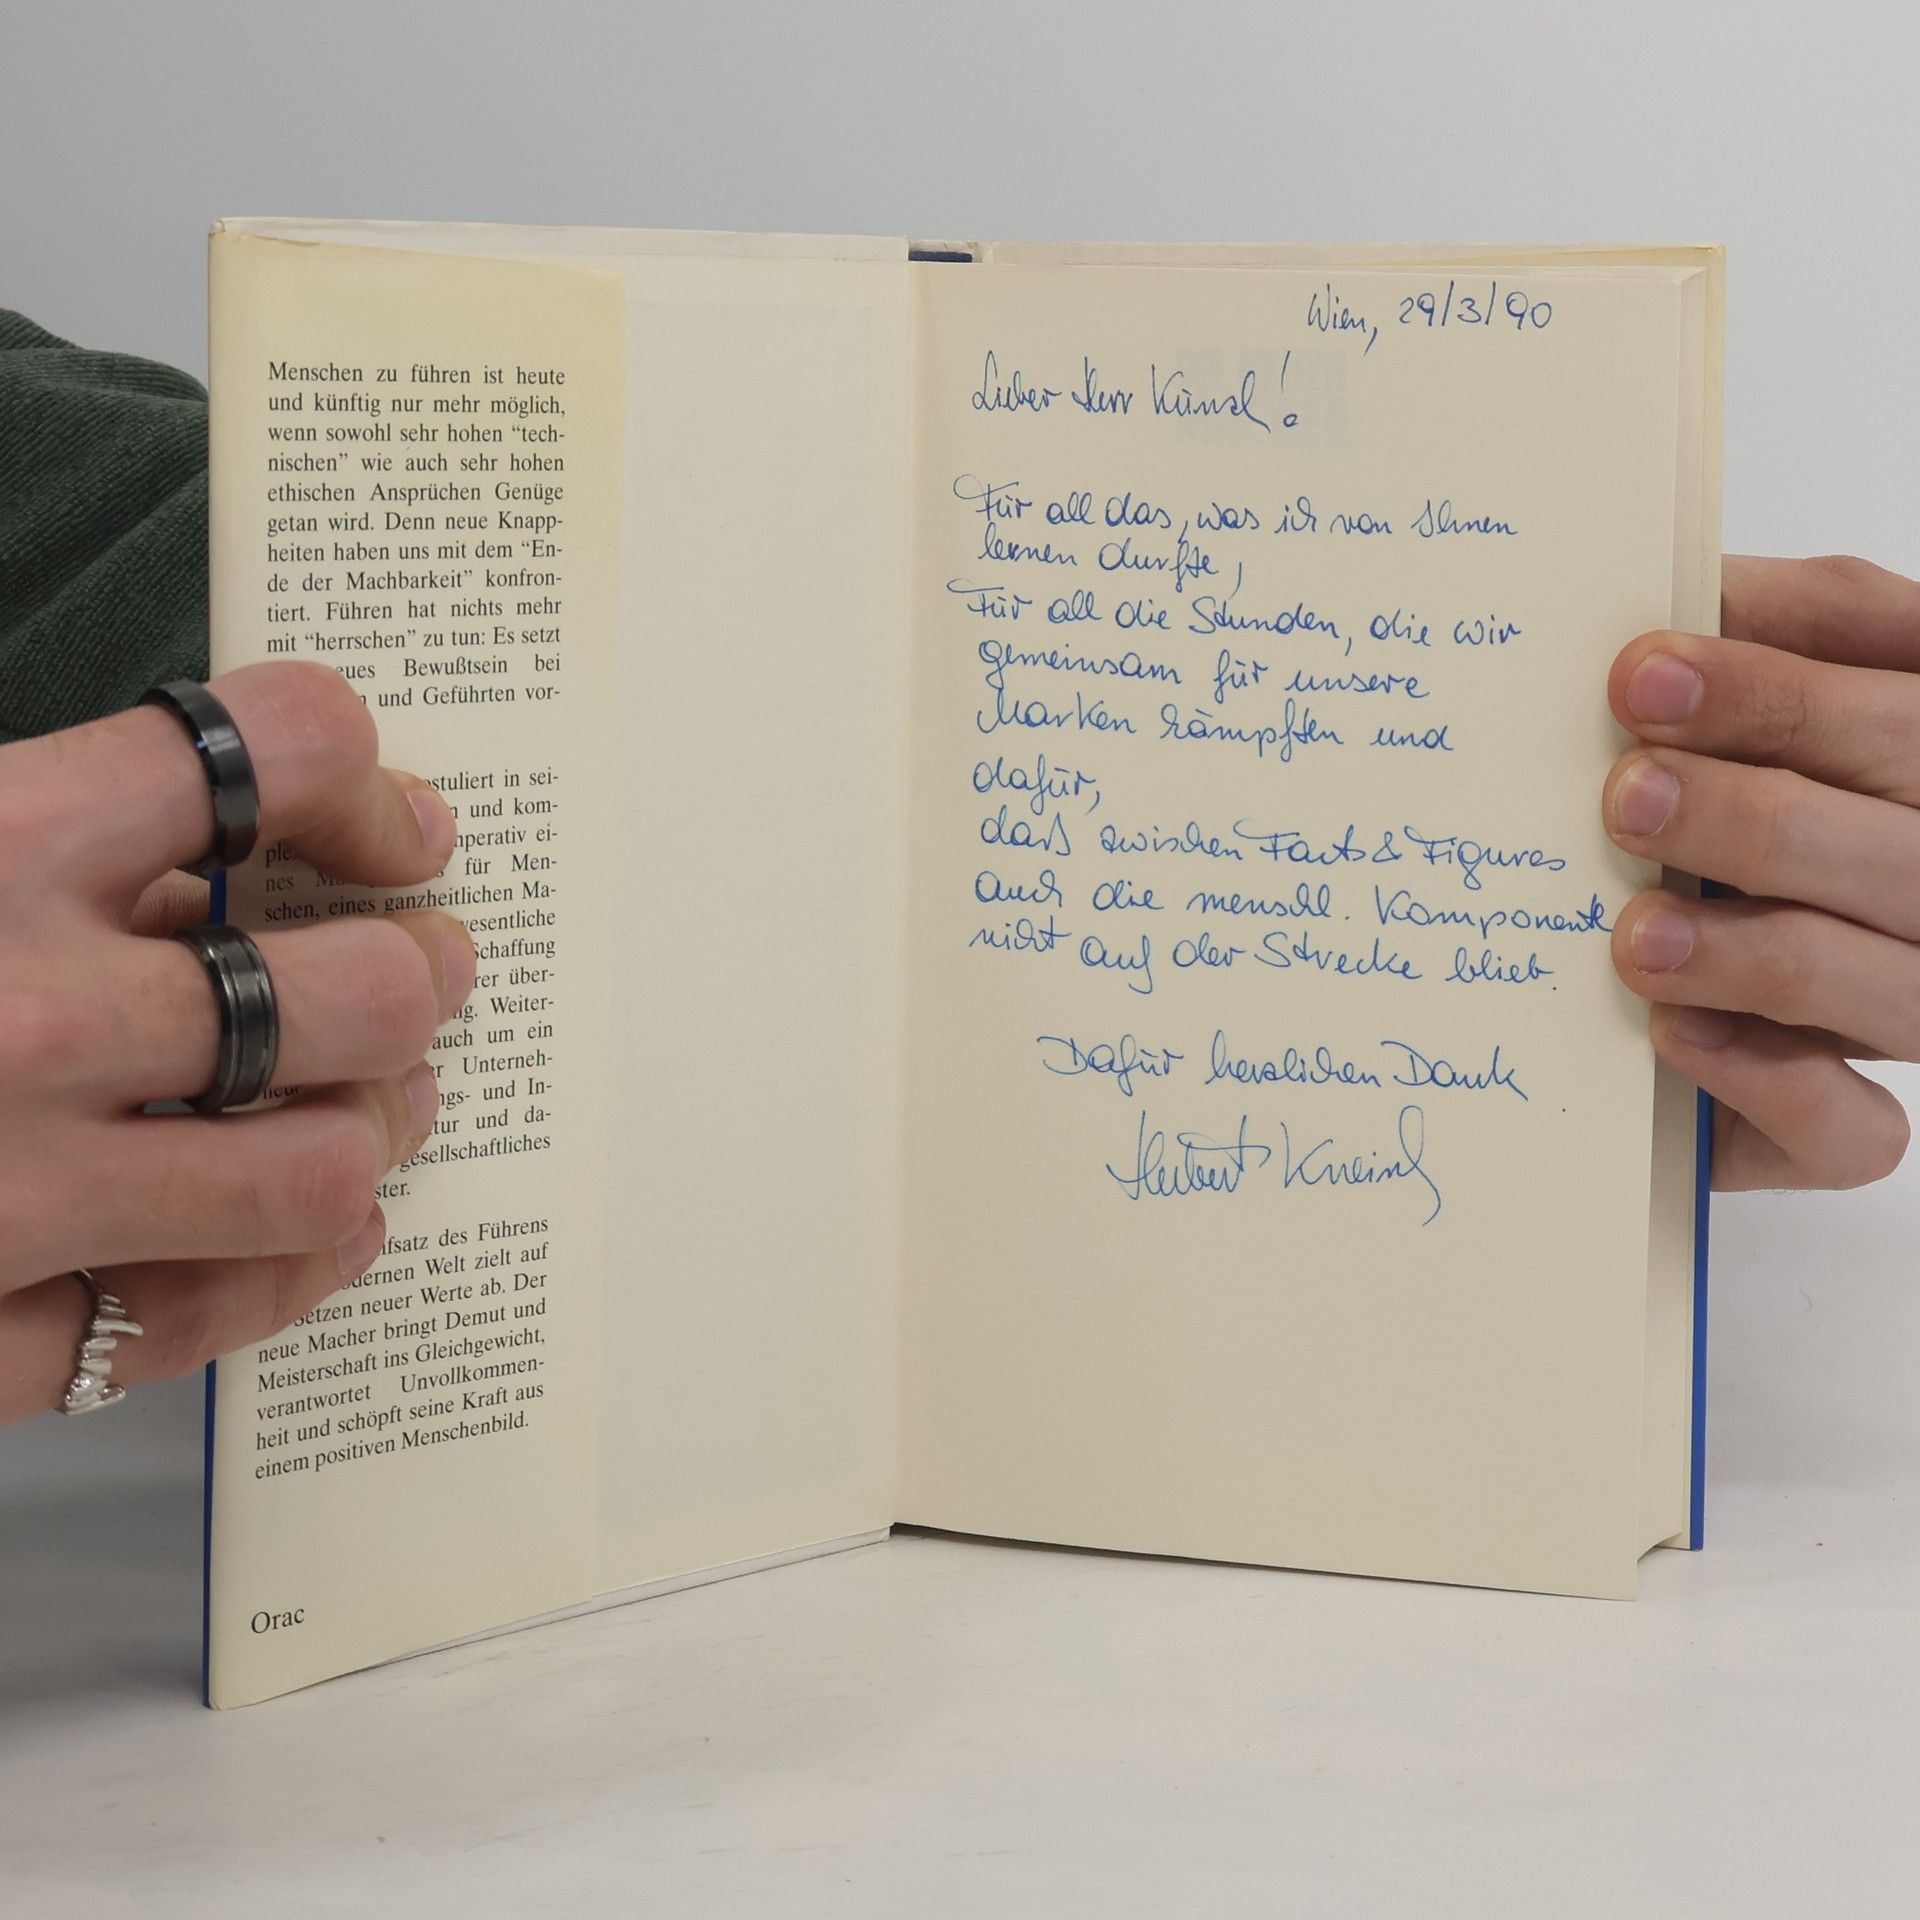 Menschen zu führen ist heute
und künftig nur mehr möglich,
wenn sowohl sehr hohen “tech-
nischen” wie auch sehr hohen
ethischen Ansprüchen Genüge
getan wird. Denn neue Knapp-
heiten haben uns mit dem “En-
de der Machbarkeit” konfron-
tiert. Führen hat nichts mehr
mit “herrschen” zu tun: Es setzt
eues Bewußtsein bei
und Geführten vor-
ostuliert in sei-
und kom-
mperativ ei-
für Men-
schen, eines ganzheitlichen Ma-
wesentliche
Schaffung
rer über-
ng. Weiter-
auch um ein
Unterneh-
ngs- und In-
tur und da-
gesellschaftliches
ster.
satz des Führens
odernen Welt zielt auf
Setzen neuer Werte ab. Der
neue Macher bringt Demut und
Meisterschaft ins Gleichgewicht,
verantwortet Unvollkommen-
heit und schöpft seine Kraft aus
einem positiven Menschenbild.
Orac
Wien, 29/3/90
Lieber Herr Künzl!
Für all das, was ich von Ihnen
lernen durfte,
Für all die Stunden, die wir
gemeinsam für unsere
Marken kämpften und
dafür,
daß zwischen Facts & Figures
auch die menschl. Komponente
nicht auf der Strecke blieb.
Dafür herzlichen Dank
Kneissl